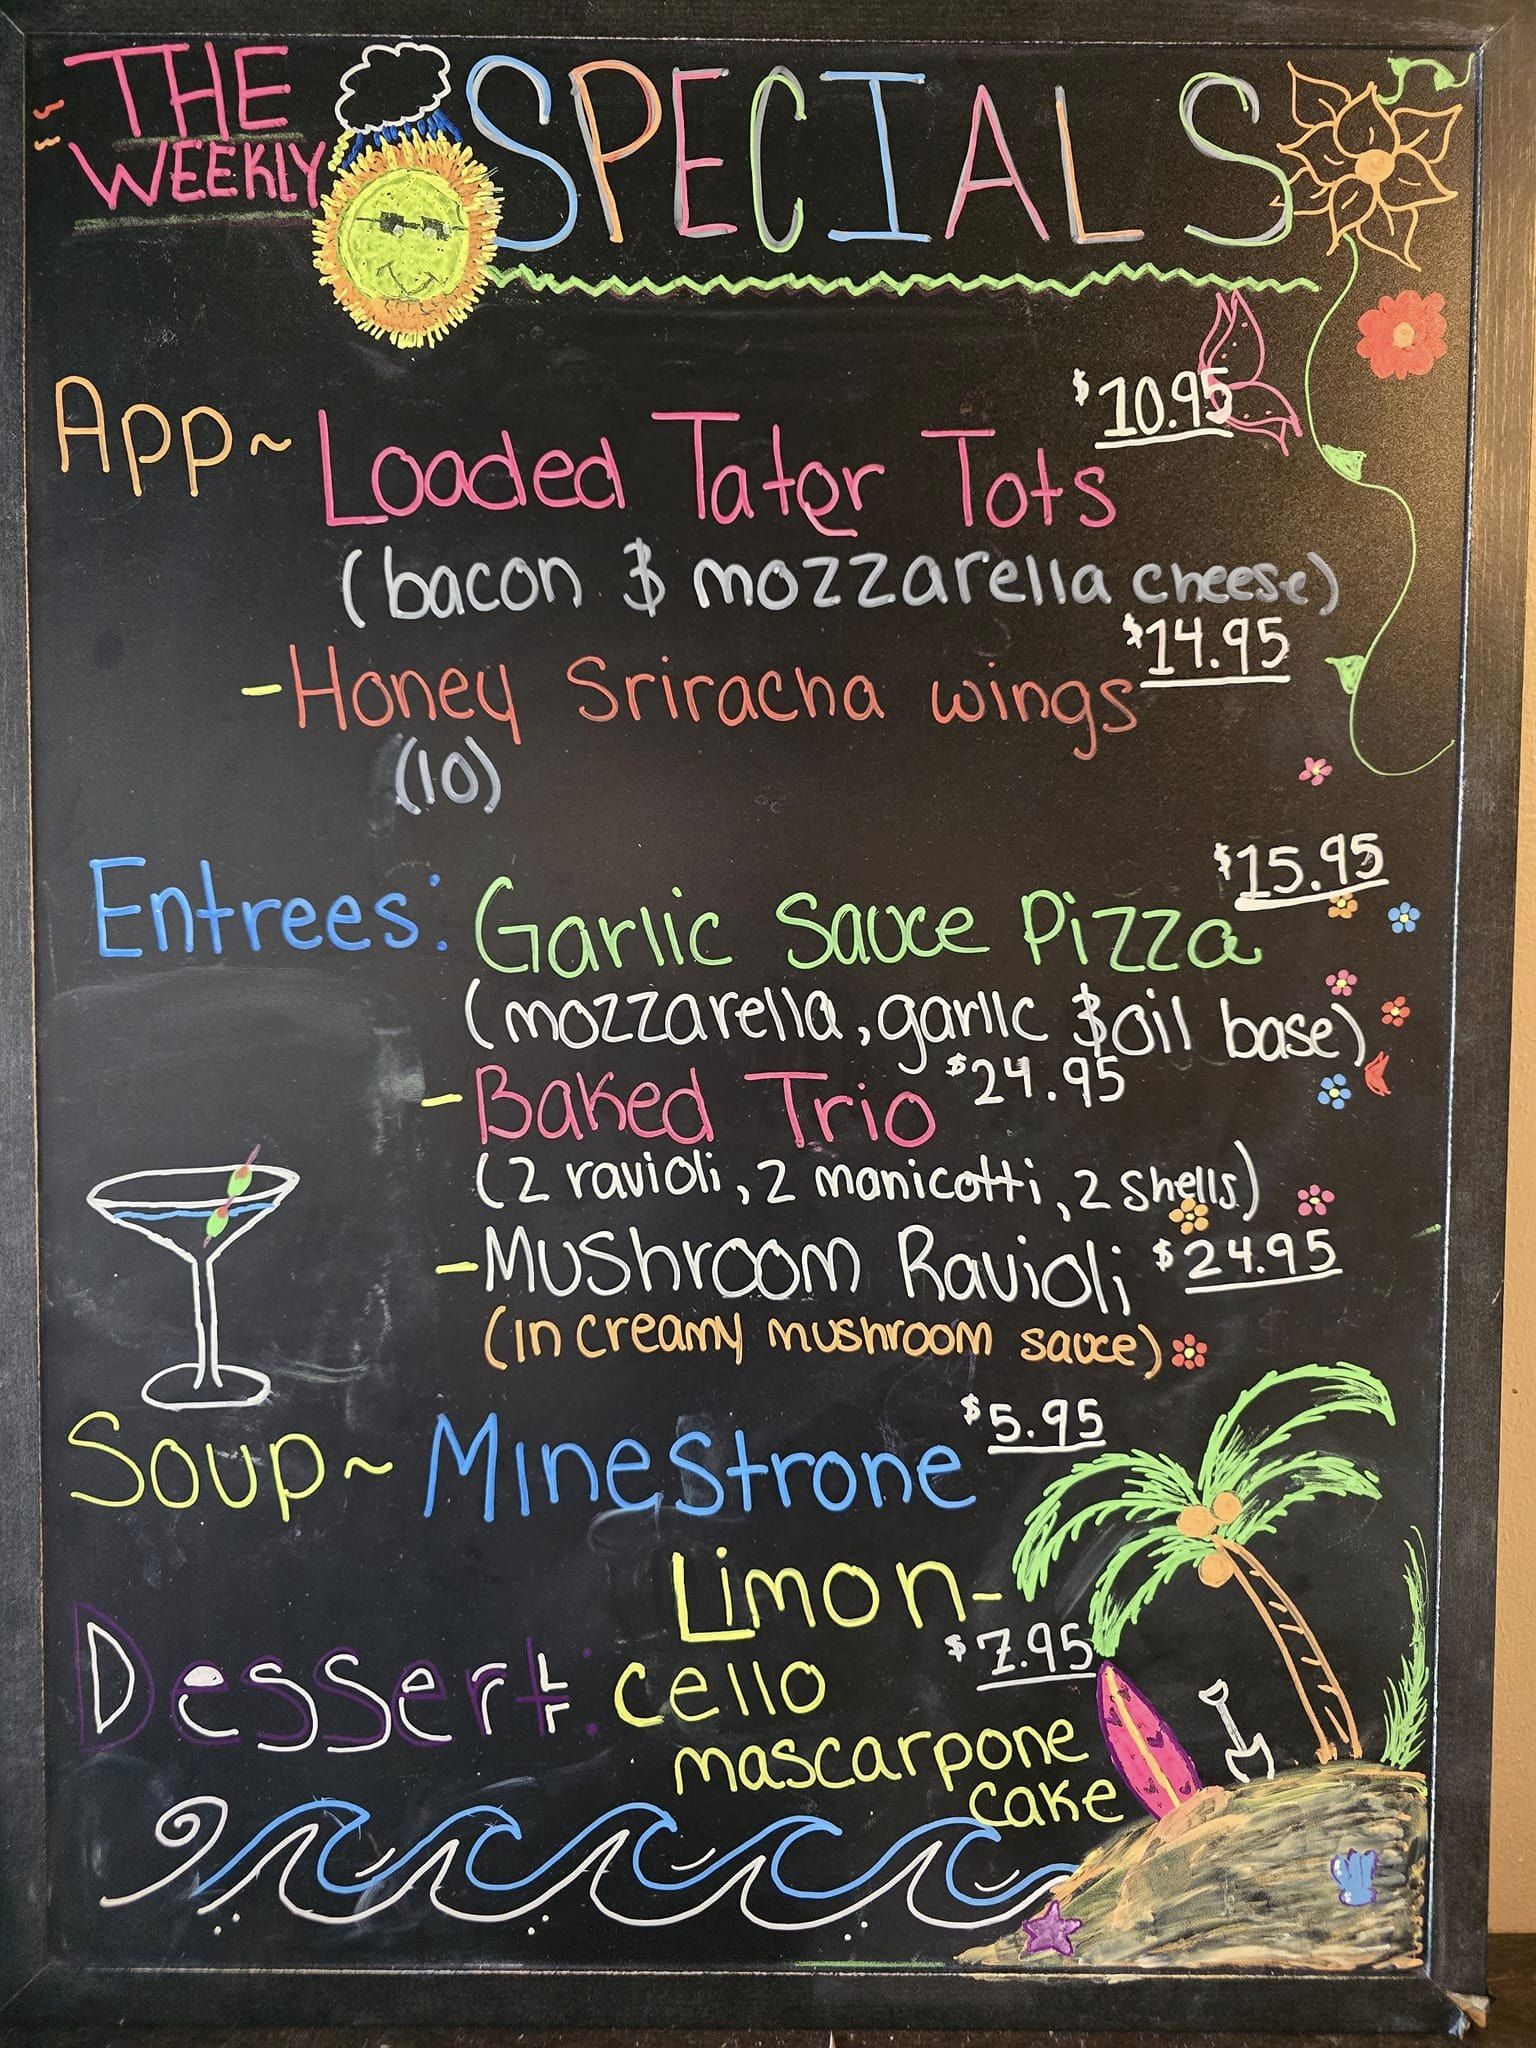 THE
WEEKLY SPECIALS
App~ Loaded Tator Tots $10.95
(bacon & mozzarella cheese)
-Honey Sriracha wings $14.95
(10)
Entrees: Garlic Sauce Pizza $15.95
(mozzarella, garlic & oil base)
-Baked Trio $24.95
(2 ravioli, 2 manicotti, 2 shells)
-Mushroom Ravioli $24.95
(in creamy mushroom sauce)
Soup~ Minestrone $5.95
Dessert: Limon-
cello $7.95
mascarpone
cake